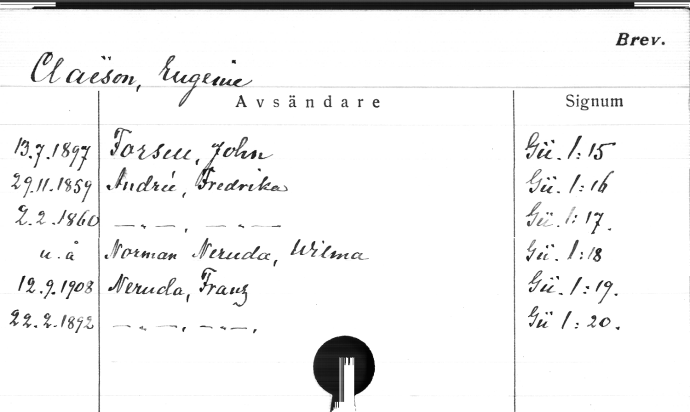 Brev.
Claëson, Eugenie
Avsändare Signum
13.7.1897 Forsell, John Gü. 1:15
29.11.1859 Andrée, Fredrika Gü. 1:16
2.2.1860 — „ —, — „ — Gü. 1:17.
u.å Norman Neruda, Wilma Gü. 1:18
12.9.1908 Neruda, Franz Gü. 1:19.
22.2.1892 — „ —, — „ —, Gü 1:20.